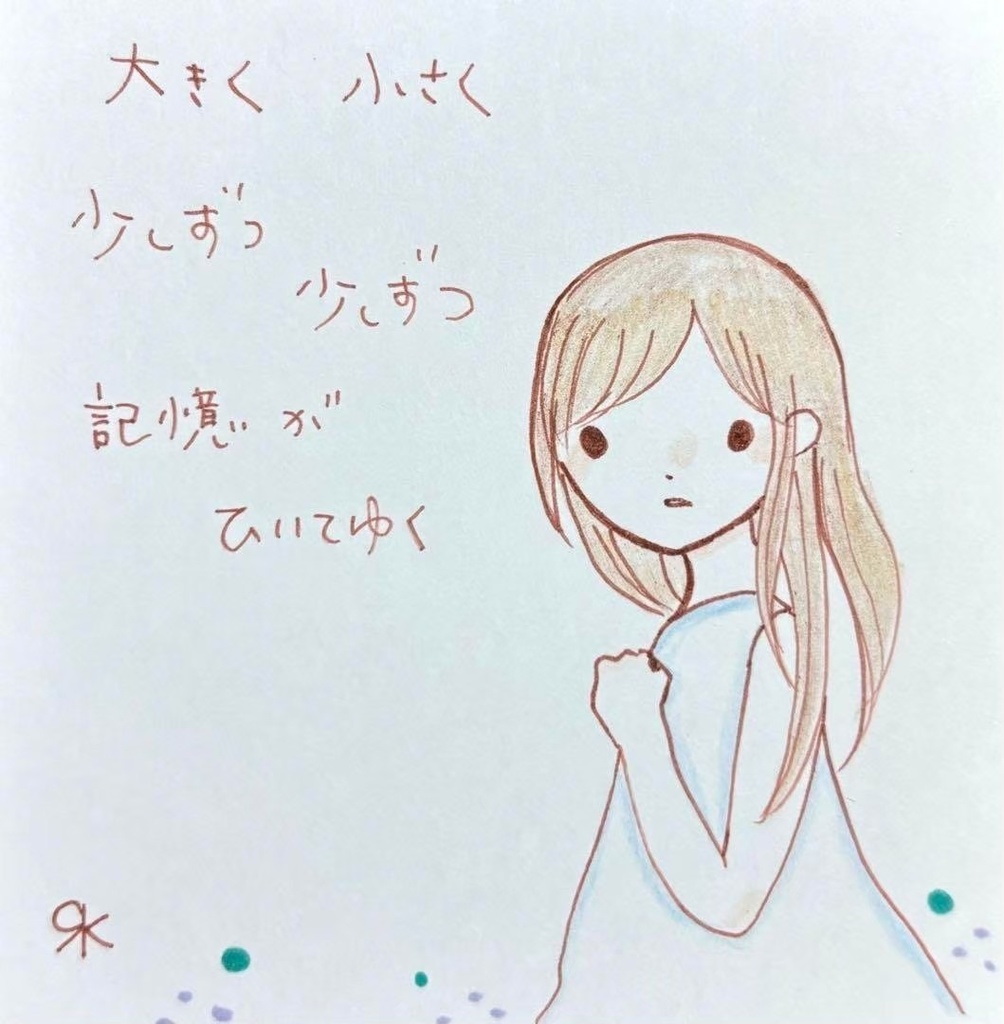 大きく 小さく
少しずつ
少しずつ
記憶が
ひいてゆく